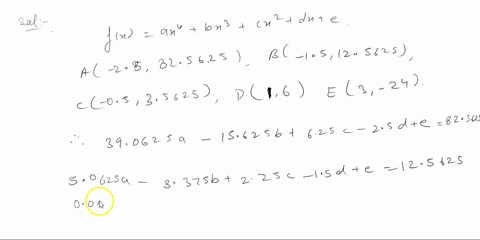 Sol:-
f(x) = ax⁴ + bx³ + cx² + dx + e
A(-2.5, 32.5625), B(-1.5, 12.5625),
C(-0.5, 3.5625), D(1, 6) E(3, -24).
∴ 39.0625a - 15.625b + 6.25c - 2.5d + e = 32.5625
5.0625a - 3.375b + 2.25c - 1.5d + e = 12.5625
0.0